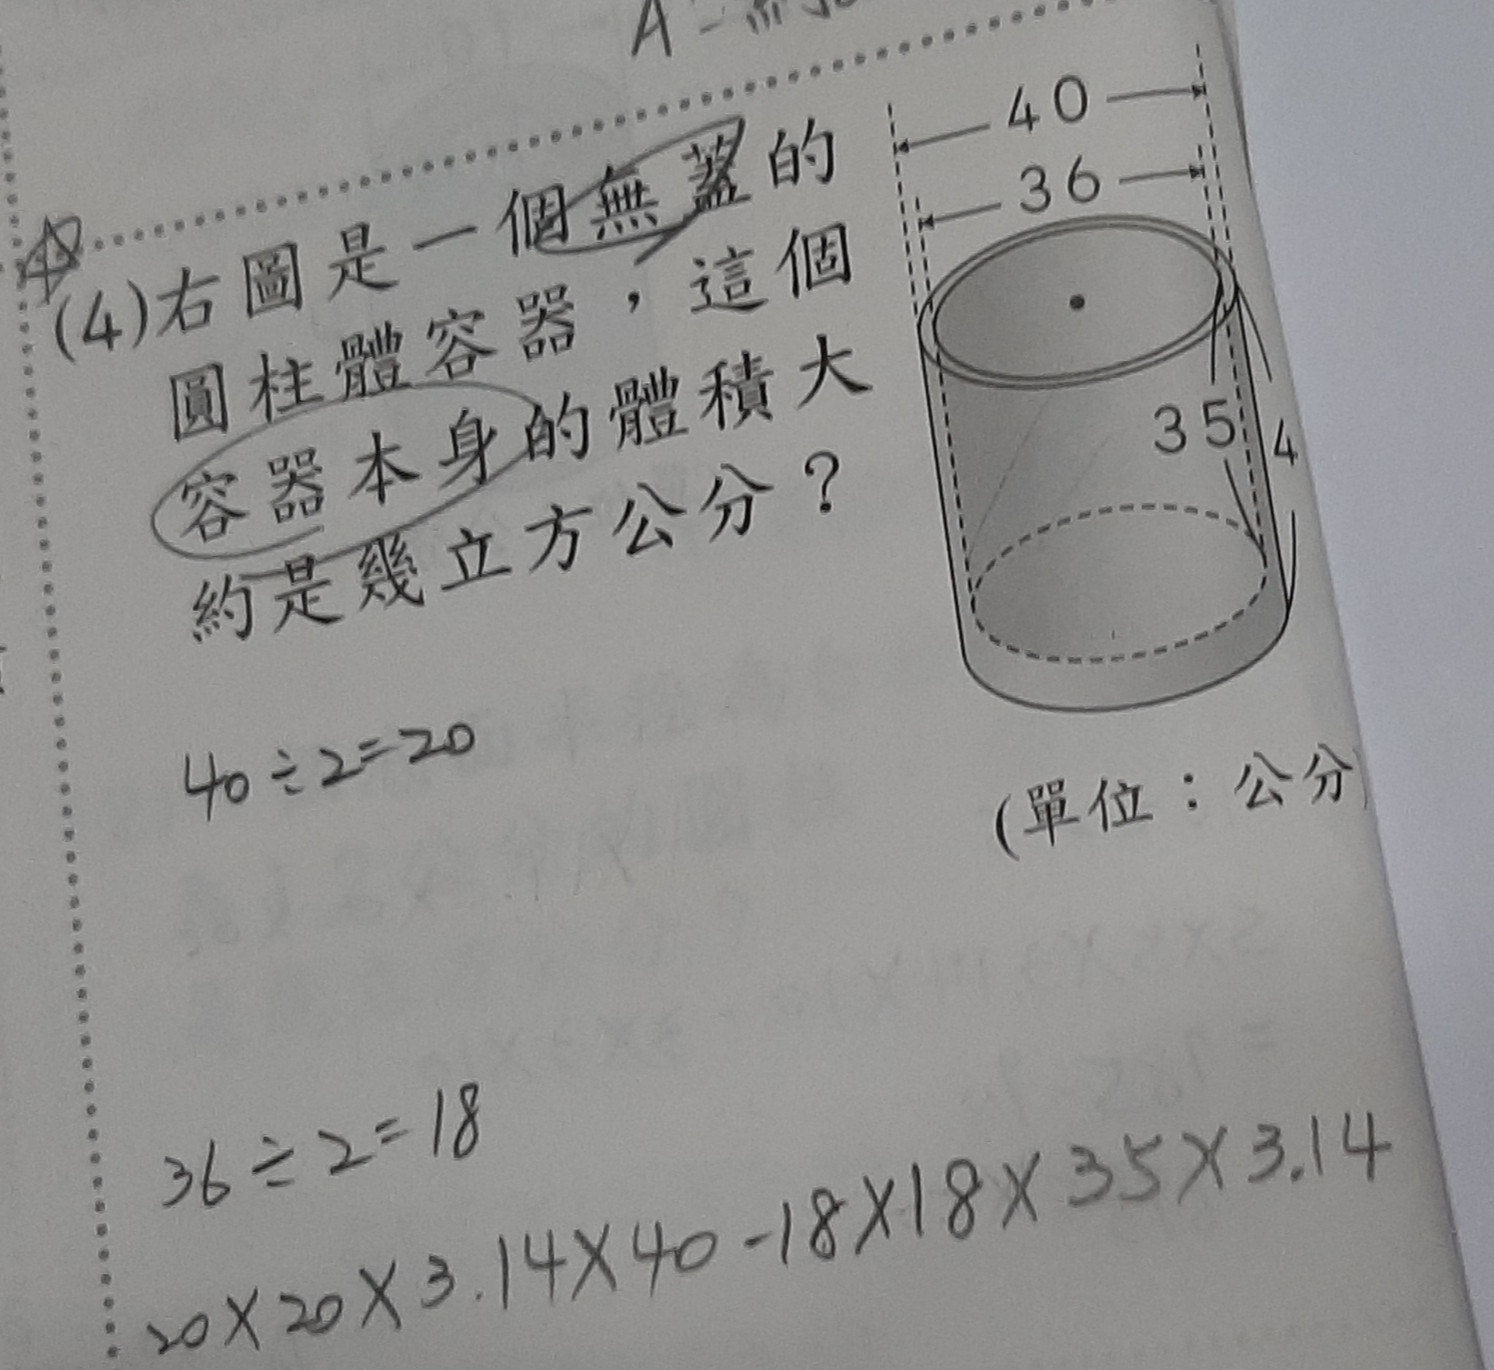 A
40
36
(4)右圖是一個無蓋的
圓柱體容器，這個
容器本身的體積大
約是幾立方公分？
35
4
(單位：公分
40÷2=20
36÷2=18
20×20×3.14×40-18×18×35×3.14